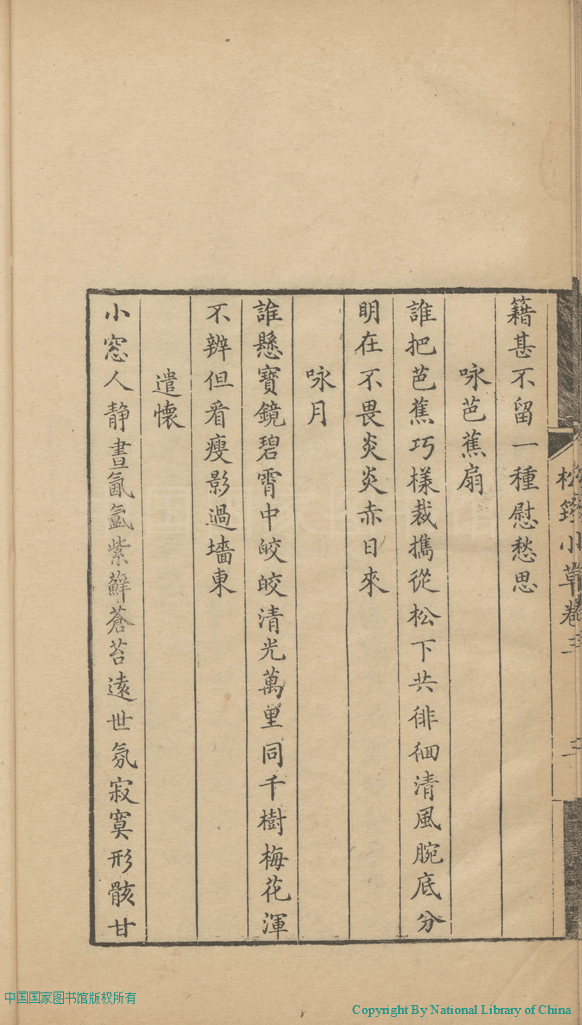 松籟小草卷三
二
籍甚不留一種慰愁思
咏芭蕉扇
誰把芭蕉巧樣裁攜從松下共徘徊清風腕底分
明在不畏炎炎赤日來
咏月
誰懸寶鏡碧霄中皎皎清光萬里同千樹梅花渾
不辨但看瘦影過墻東
遣懷
小窓人静晝氤氳紫蘚蒼苔遠世氛寂寞形骸甘
中国国家图书馆版权所有
Copyright By National Library of China